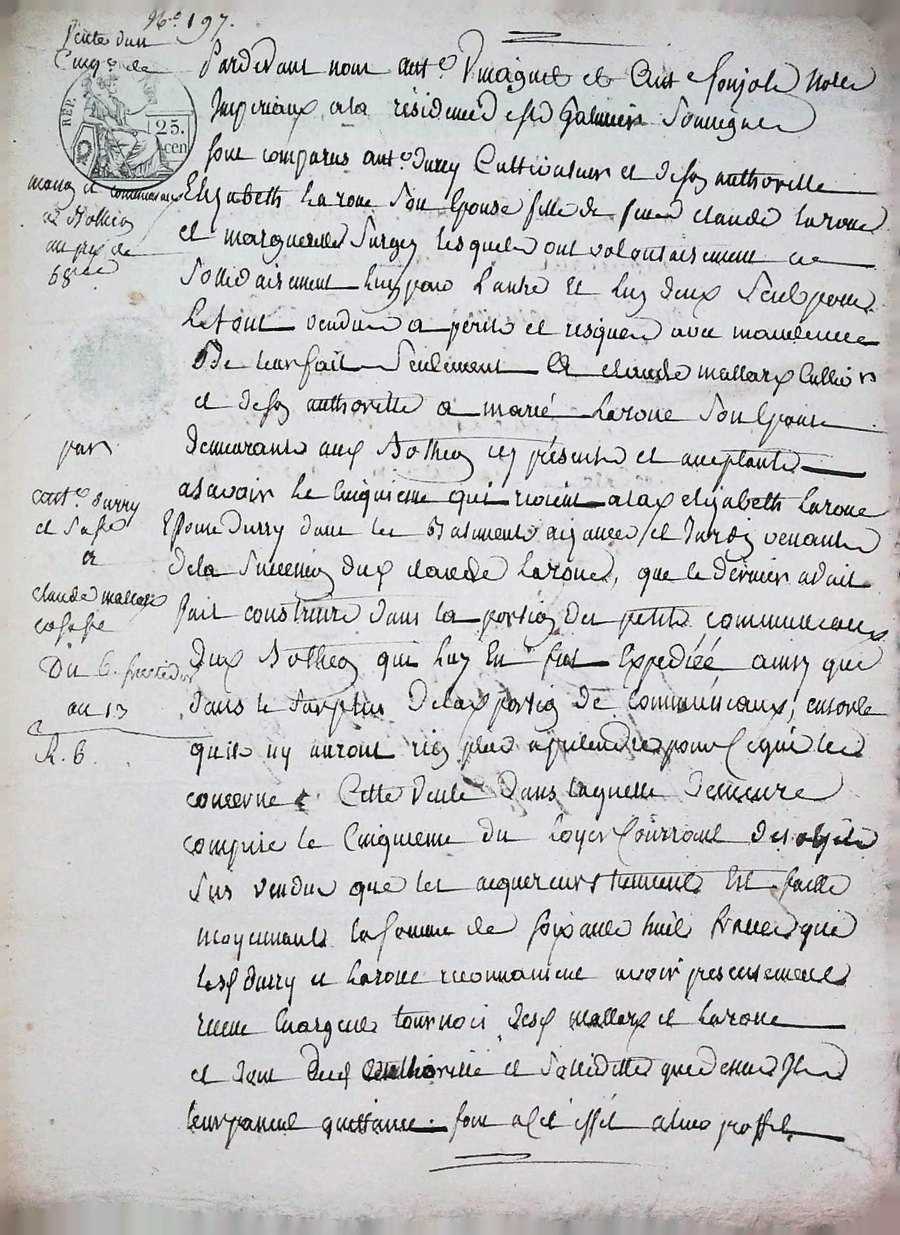 N.o 197.
Vente d'un
Cinq.e de
REP.
25.
cen
maison et communeaux
a Bothéon
au prix de
68
par
ant.e Durry
et sa fe
a
claude mallard
et sa fe
Du 6. fructidor
an 13
R. 6.
Pardevant nous ant.e et ant Notes
Imperiaux a la résidence de St Galmier Soussignés
sont comparus ant.e Durry Cultivateur et de son authorité
Elizabeth Laroue son Epouse fille de feu claude Laroue
et marguerite lesquels ont volontairement et
solidairement l'un pour l'autre et l'un deux seul pour
Le tout vendu a perils et risques avec maintenue
De leur fait seulement a claude mallard Cultiv.r
et de son authorité a marie Laroue son Epouse
demeurants aux Botheon icy présents et acceptants
a savoir le cinquieme qui revient a lad elizabeth Laroue
Epouse Durry dans les Batiments aizances et Jardin venants
de la succession dud claude Laroue, que le dernier avait
fait construire dans la portion des petits communeaux
Dud Botheon qui luy en fut Expediéé ainsy que
dans le surplus de lad portion de communeaux, ensorte
quils ny auront rien plus a prétendre pour ce qui les
concerne. Cette vente dans laquelle demeure
comprise le cinquieme du loyer Courrant des objets
sus vendus que les acquereurs tiennent Est faite
moyennant la somme de soixante huit francs que
lesd Durry et Laroue reconnaissent avoir presentement
recue en argent tournois desd mallard et Laroue
et dont aud authorité et solidité que dessus Ils
leur passent quittance. font a cet effet a leur proffit